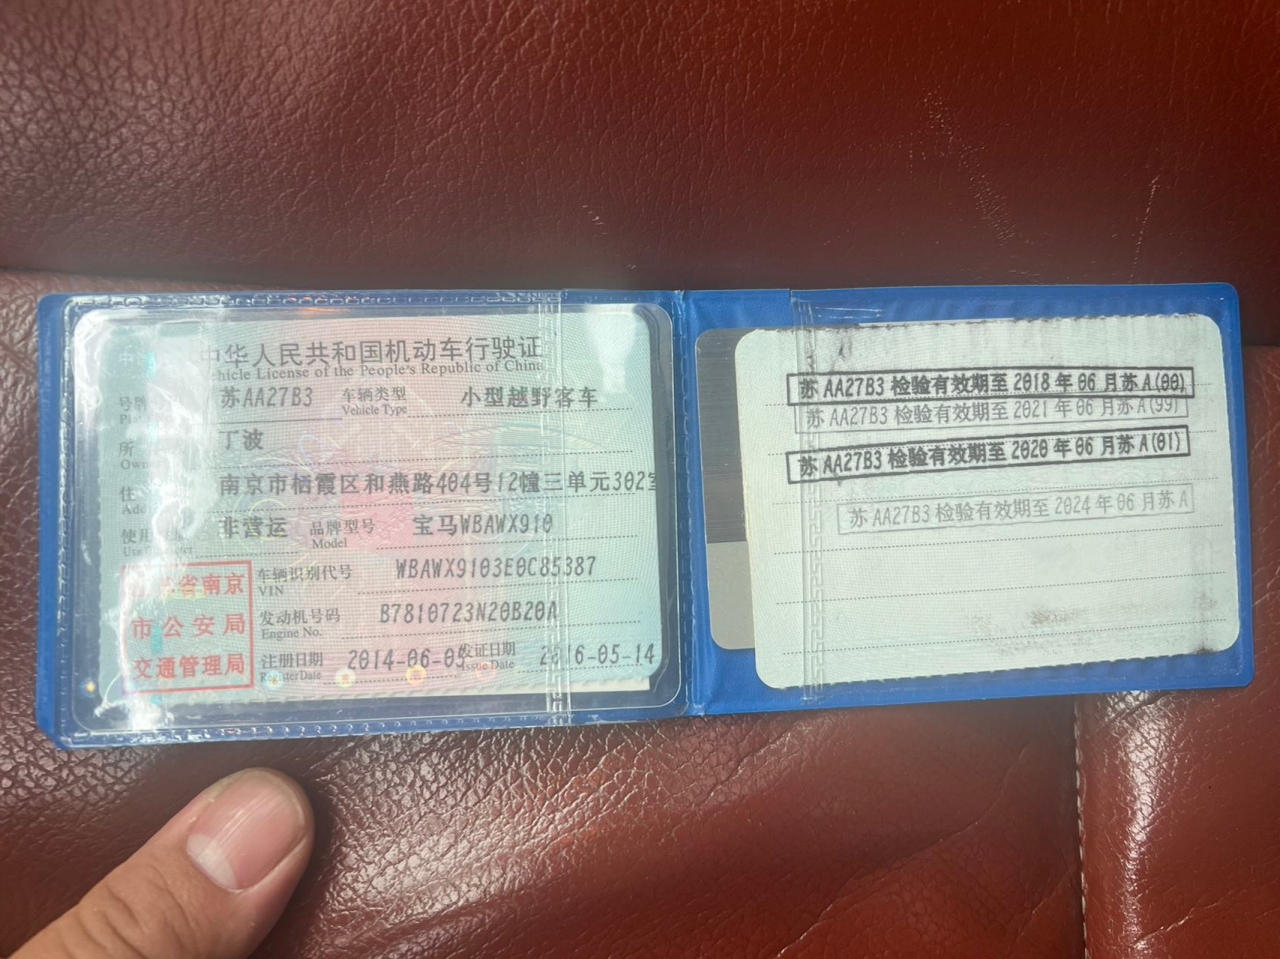 中华人民共和国机动车行驶证
Vehicle License of the People's Republic of China
号牌 苏AA27B3 车辆类型 小型越野客车
Vehicle Type
所 丁波
Owner
住 南京市栖霞区和燕路404号12幢三单元302室
使用 非营运 品牌型号 宝马WBAWX910
Model
车辆识别代号 WBAWX9103E0C85387
VIN
发动机号码 B7810723N20B20A
Engine No.
注册日期 2014-06-05 发证日期 2016-05-14
Register Date Issue Date
省南京
市公安局
交通管理局
苏AA27B3 检验有效期至2018年06月苏A(00)
苏AA27B3 检验有效期至2021年06月苏A(99)
苏AA27B3 检验有效期至2020年06月苏A(01)
苏AA27B3 检验有效期至2024年06月苏A